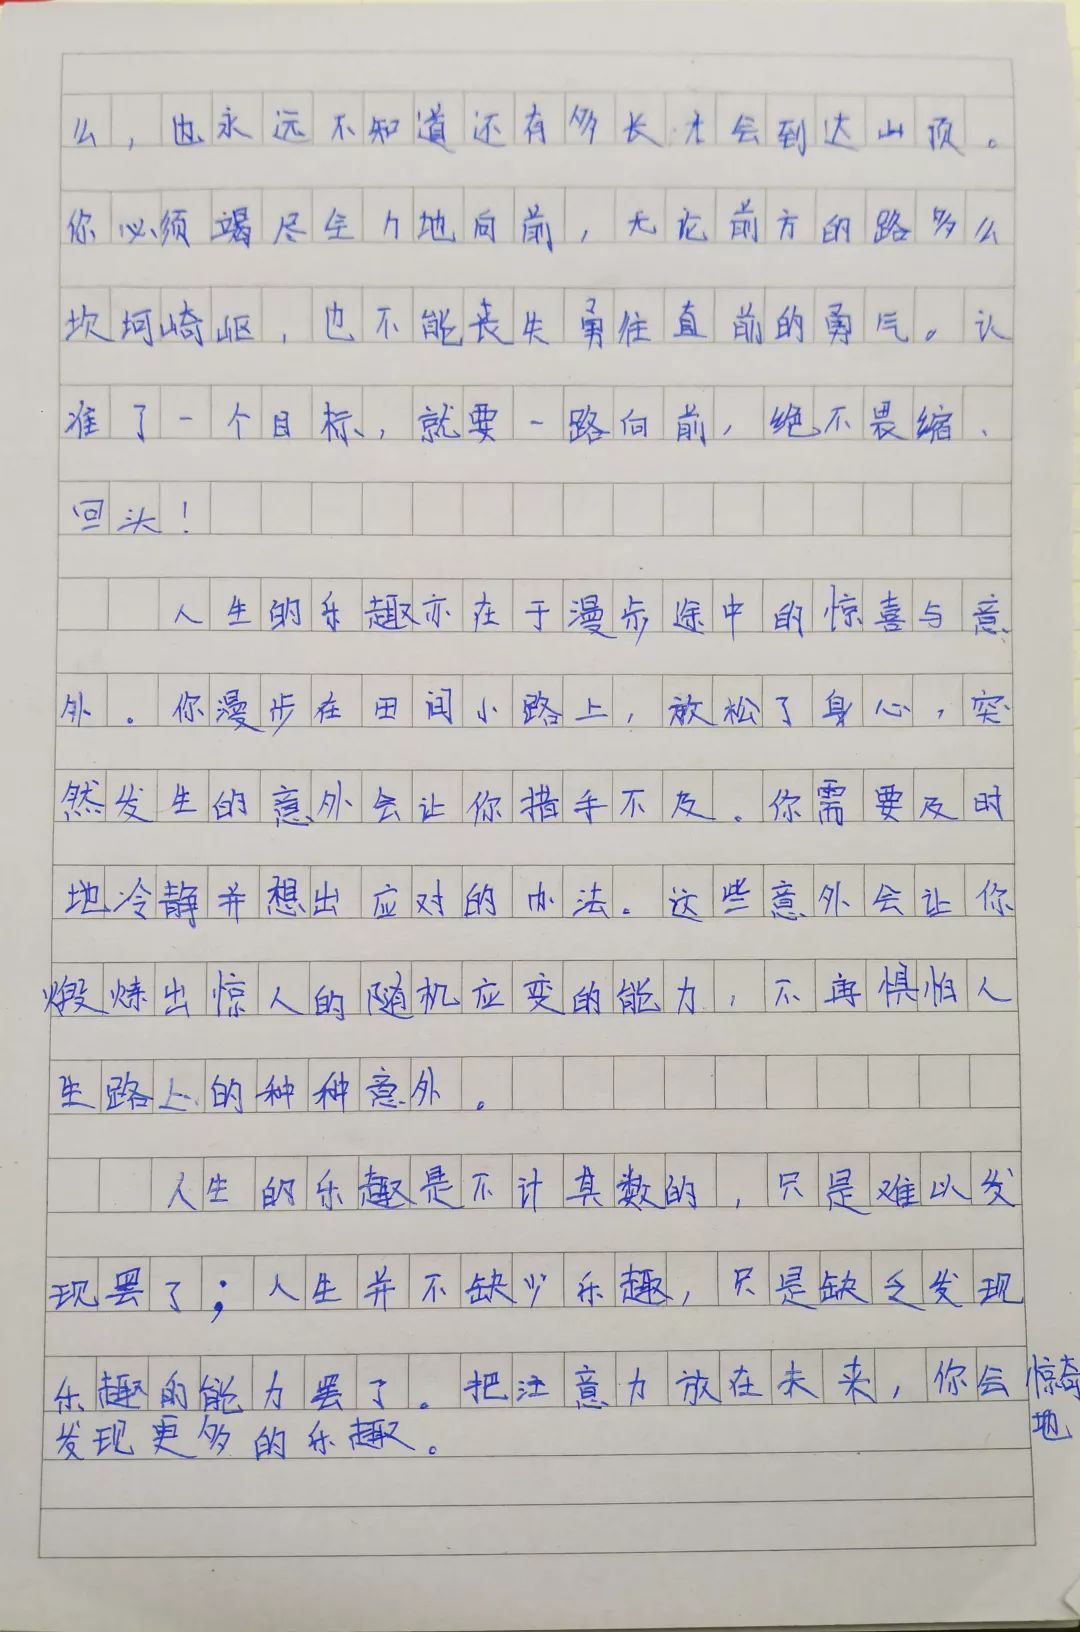 么，也永远不知道还有多长才会到达山顶。
你必须竭尽全力地向前，无论前方的路多么
坎坷崎岖，也不能丧失勇往直前的勇气。认
准了一个目标，就要一路向前，绝不畏缩、
回头！
人生的乐趣亦在于漫步途中的惊喜与意
外。你漫步在田间小路上，放松了身心，突
然发生的意外会让你措手不及。你需要及时
地冷静并想出应对的办法。这些意外会让你
煅炼出惊人的随机应变的能力，不再惧怕人
生路上的种种意外。
人生的乐趣是不计其数的，只是难以发
现罢了；人生并不缺少乐趣，只是缺乏发现
乐趣的能力罢了。把注意力放在未来，你会惊奇
地
发现更多的乐趣。